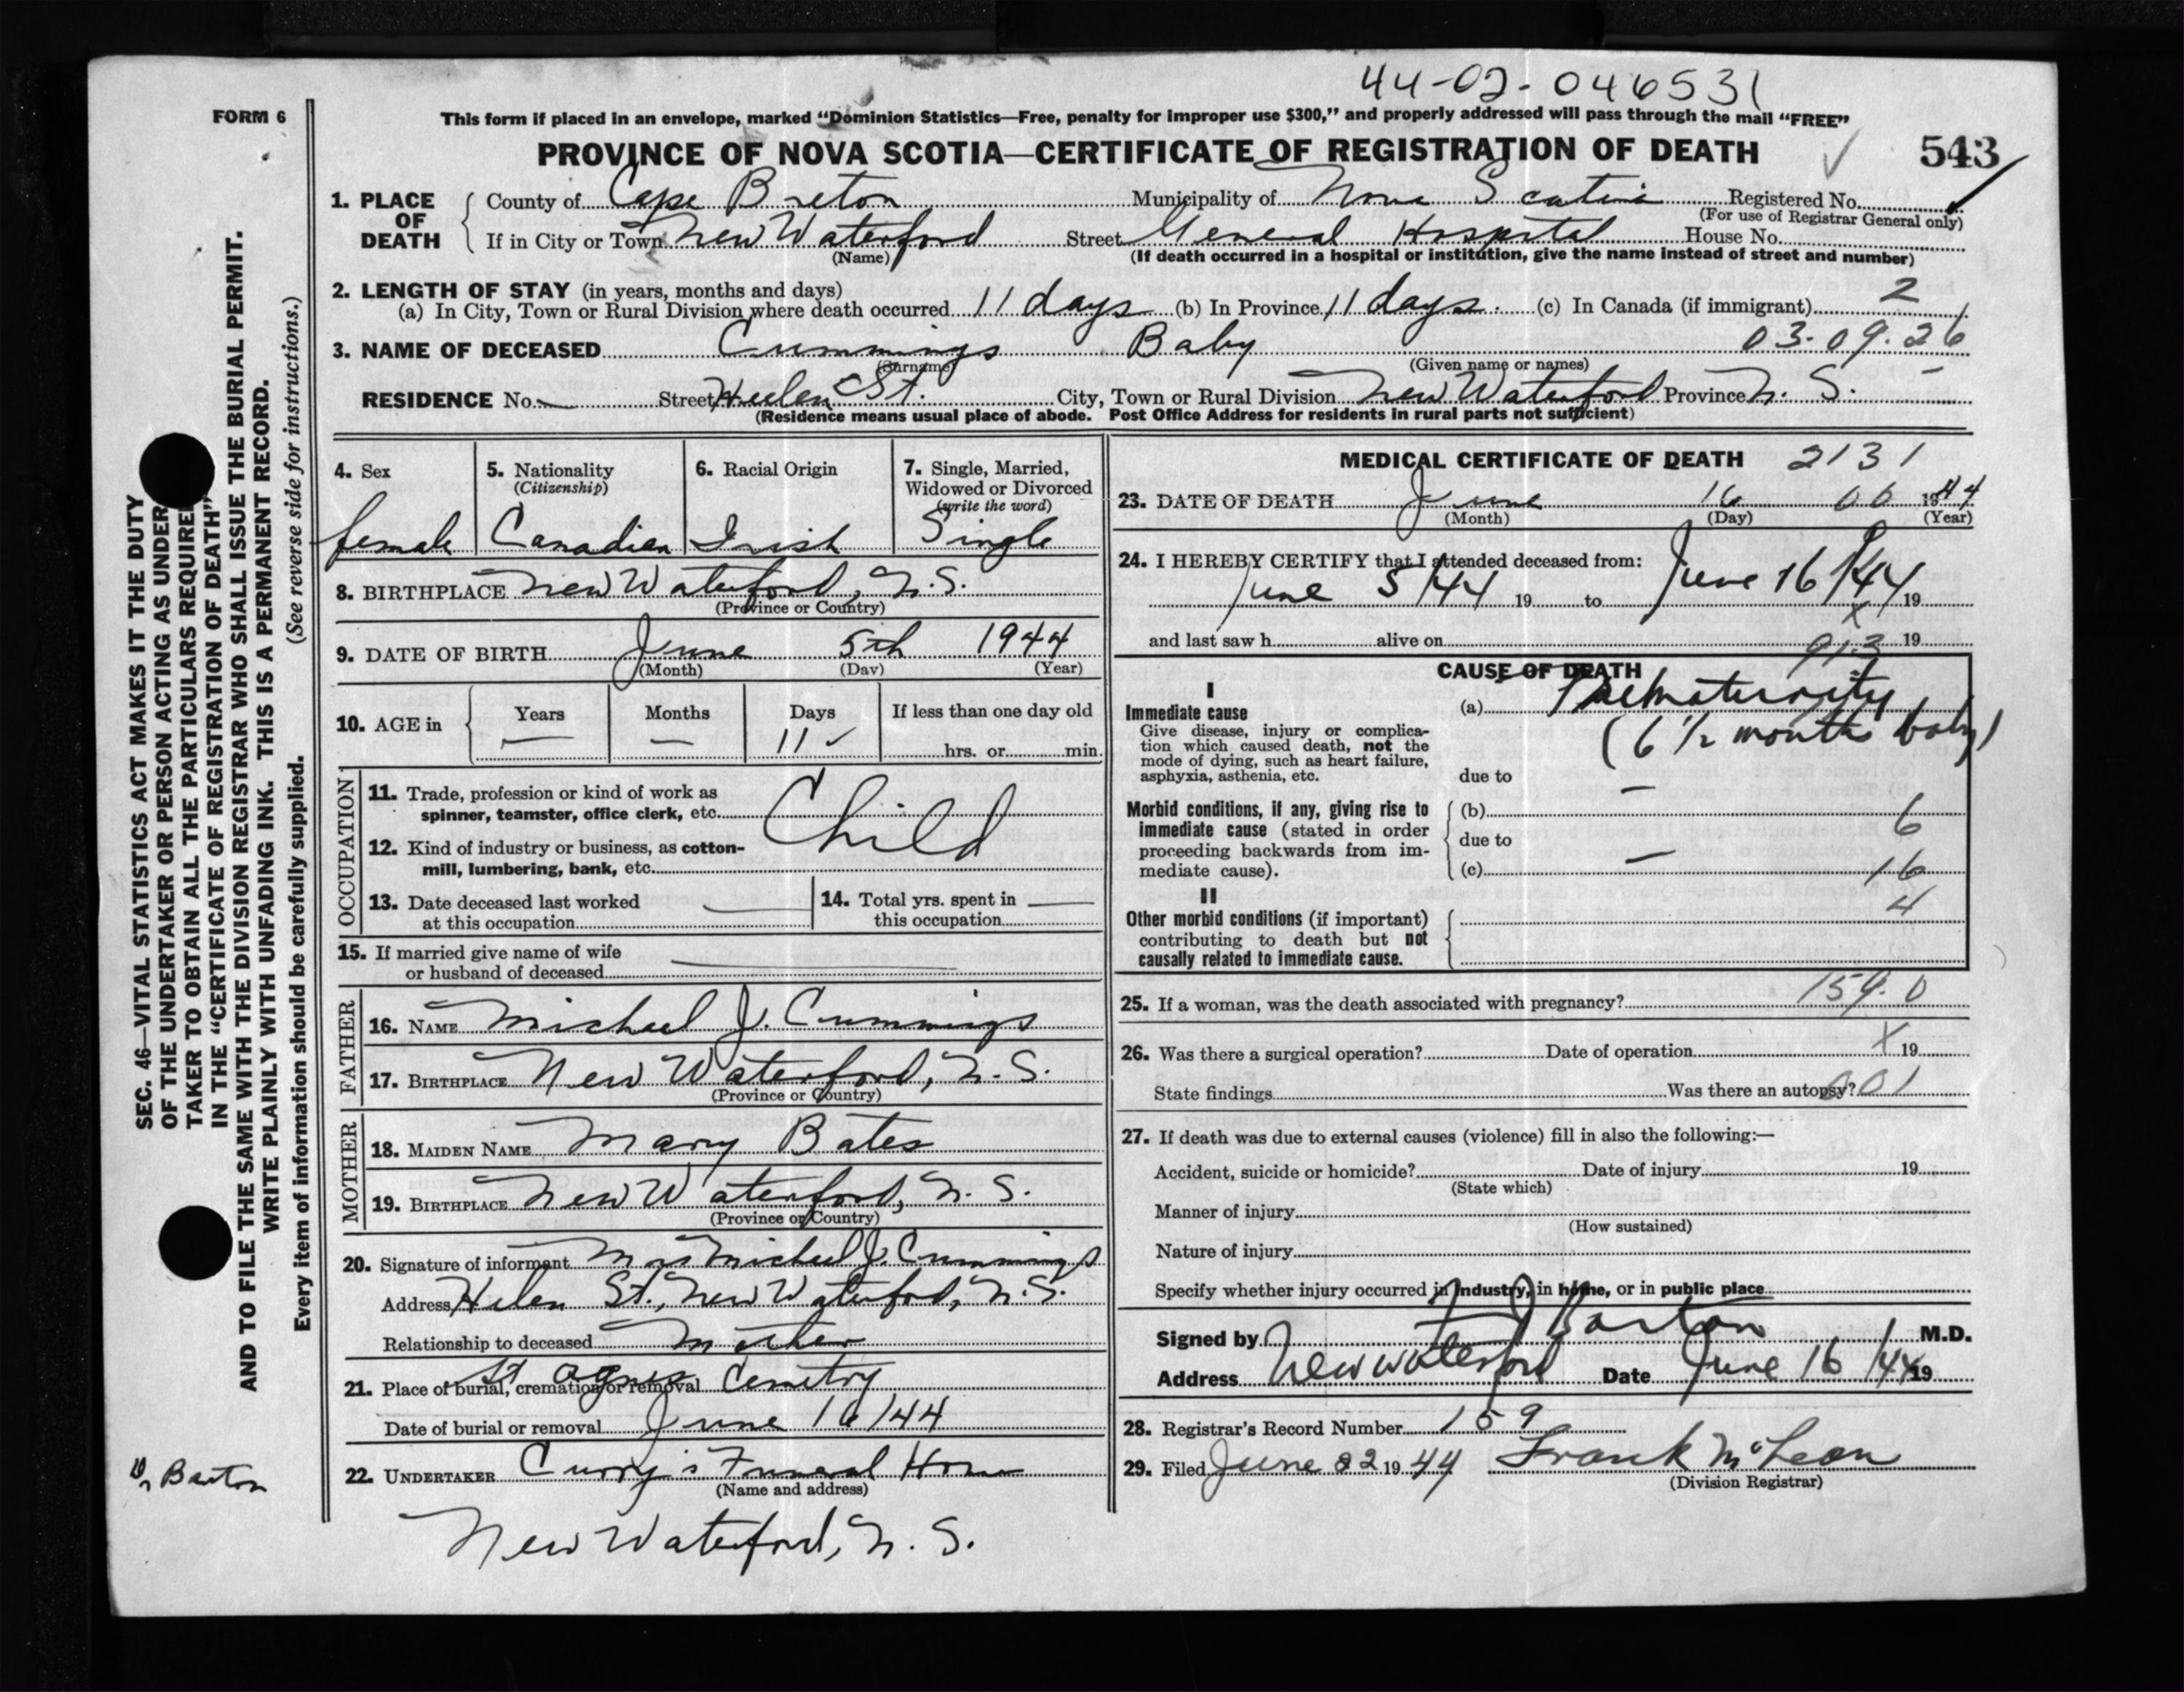 44-02-046531
FORM 6
This form if placed in an envelope, marked “Dominion Statistics—Free, penalty for improper use $300,” and properly addressed will pass through the mail “FREE”
PROVINCE OF NOVA SCOTIA—CERTIFICATE OF REGISTRATION OF DEATH
543
1. PLACE OF DEATH
County of Cape Breton Municipality of Nova Scotia Registered No.
(For use of Registrar General only)
If in City or Town New Waterford Street General Hospital House No.
(Name) (If death occurred in a hospital or institution, give the name instead of street and number)
2. LENGTH OF STAY (in years, months and days)
(a) In City, Town or Rural Division where death occurred 11 days (b) In Province 11 days. (c) In Canada (if immigrant) 2
3. NAME OF DECEASED Cummings Baby 03-09-26
(Surname) (Given name or names)
RESIDENCE No. — Street Helen St. City, Town or Rural Division New Waterford Province N. S.
(Residence means usual place of abode. Post Office Address for residents in rural parts not sufficient)
4. Sex
female
5. Nationality
(Citizenship)
Canadian
6. Racial Origin
Irish
7. Single, Married, Widowed or Divorced
(write the word)
Single
8. BIRTHPLACE New Waterford, N.S.
(Province or Country)
9. DATE OF BIRTH June 5th 1944
(Month) (Day) (Year)
10. AGE in
Years Months Days If less than one day old
— — 11 ✓ hrs. or min.
OCCUPATION
11. Trade, profession or kind of work as
spinner, teamster, office clerk, etc. Child
12. Kind of industry or business, as cotton-
mill, lumbering, bank, etc.
13. Date deceased last worked
at this occupation —
14. Total yrs. spent in
this occupation —
15. If married give name of wife
or husband of deceased —
FATHER
16. NAME Michael J. Cummings
17. BIRTHPLACE New Waterford, N.S.
(Province or Country)
MOTHER
18. MAIDEN NAME Mary Bates
19. BIRTHPLACE New Waterford, N. S.
(Province or Country)
20. Signature of informant Mrs Michael J. Cummings
Address Helen St., New Waterford, N.S.
Relationship to deceased Mother
21. Place of burial, cremation or removal St Agnes Cemetry
Date of burial or removal June 16/44
22. UNDERTAKER Curry's Funeral Home
(Name and address)
New Waterford, N. S.
MEDICAL CERTIFICATE OF DEATH 2131
23. DATE OF DEATH June 16 06 1944
(Month) (Day) (Year)
24. I HEREBY CERTIFY that I attended deceased from:
June 5/44 19 to June 16/44 19
and last saw h alive on 19
CAUSE OF DEATH
I
Immediate cause
Give disease, injury or complica-
tion which caused death, not the
mode of dying, such as heart failure,
asphyxia, asthenia, etc.
(a) Prematurity
(6 1/2 months baby)
due to
Morbid conditions, if any, giving rise to
immediate cause (stated in order
proceeding backwards from im-
mediate cause).
(b) — 6
due to
(c) — 16
II
4
Other morbid conditions (if important)
contributing to death but not
causally related to immediate cause.
25. If a woman, was the death associated with pregnancy? 159.0
26. Was there a surgical operation? Date of operation X 19
State findings Was there an autopsy? 001
27. If death was due to external causes (violence) fill in also the following:—
Accident, suicide or homicide? Date of injury 19
(State which)
Manner of injury
(How sustained)
Nature of injury
Specify whether injury occurred in industry, in home, or in public place
Signed by Barton M.D.
Address New Waterford Date June 16/44 19
28. Registrar's Record Number 159
29. Filed June 22 1944 Frank McLean
(Division Registrar)
SEC. 46—VITAL STATISTICS ACT MAKES IT THE DUTY
OF THE UNDERTAKER OR PERSON ACTING AS UNDER
TAKER TO OBTAIN ALL THE PARTICULARS REQUIRE
IN THE “CERTIFICATE OF REGISTRATION OF DEATH”
AND TO FILE THE SAME WITH THE DIVISION REGISTRAR WHO SHALL ISSUE THE BURIAL PERMIT.
WRITE PLAINLY WITH UNFADING INK. THIS IS A PERMANENT RECORD.
Every item of information should be carefully supplied. (See reverse side for instructions.)
Barton